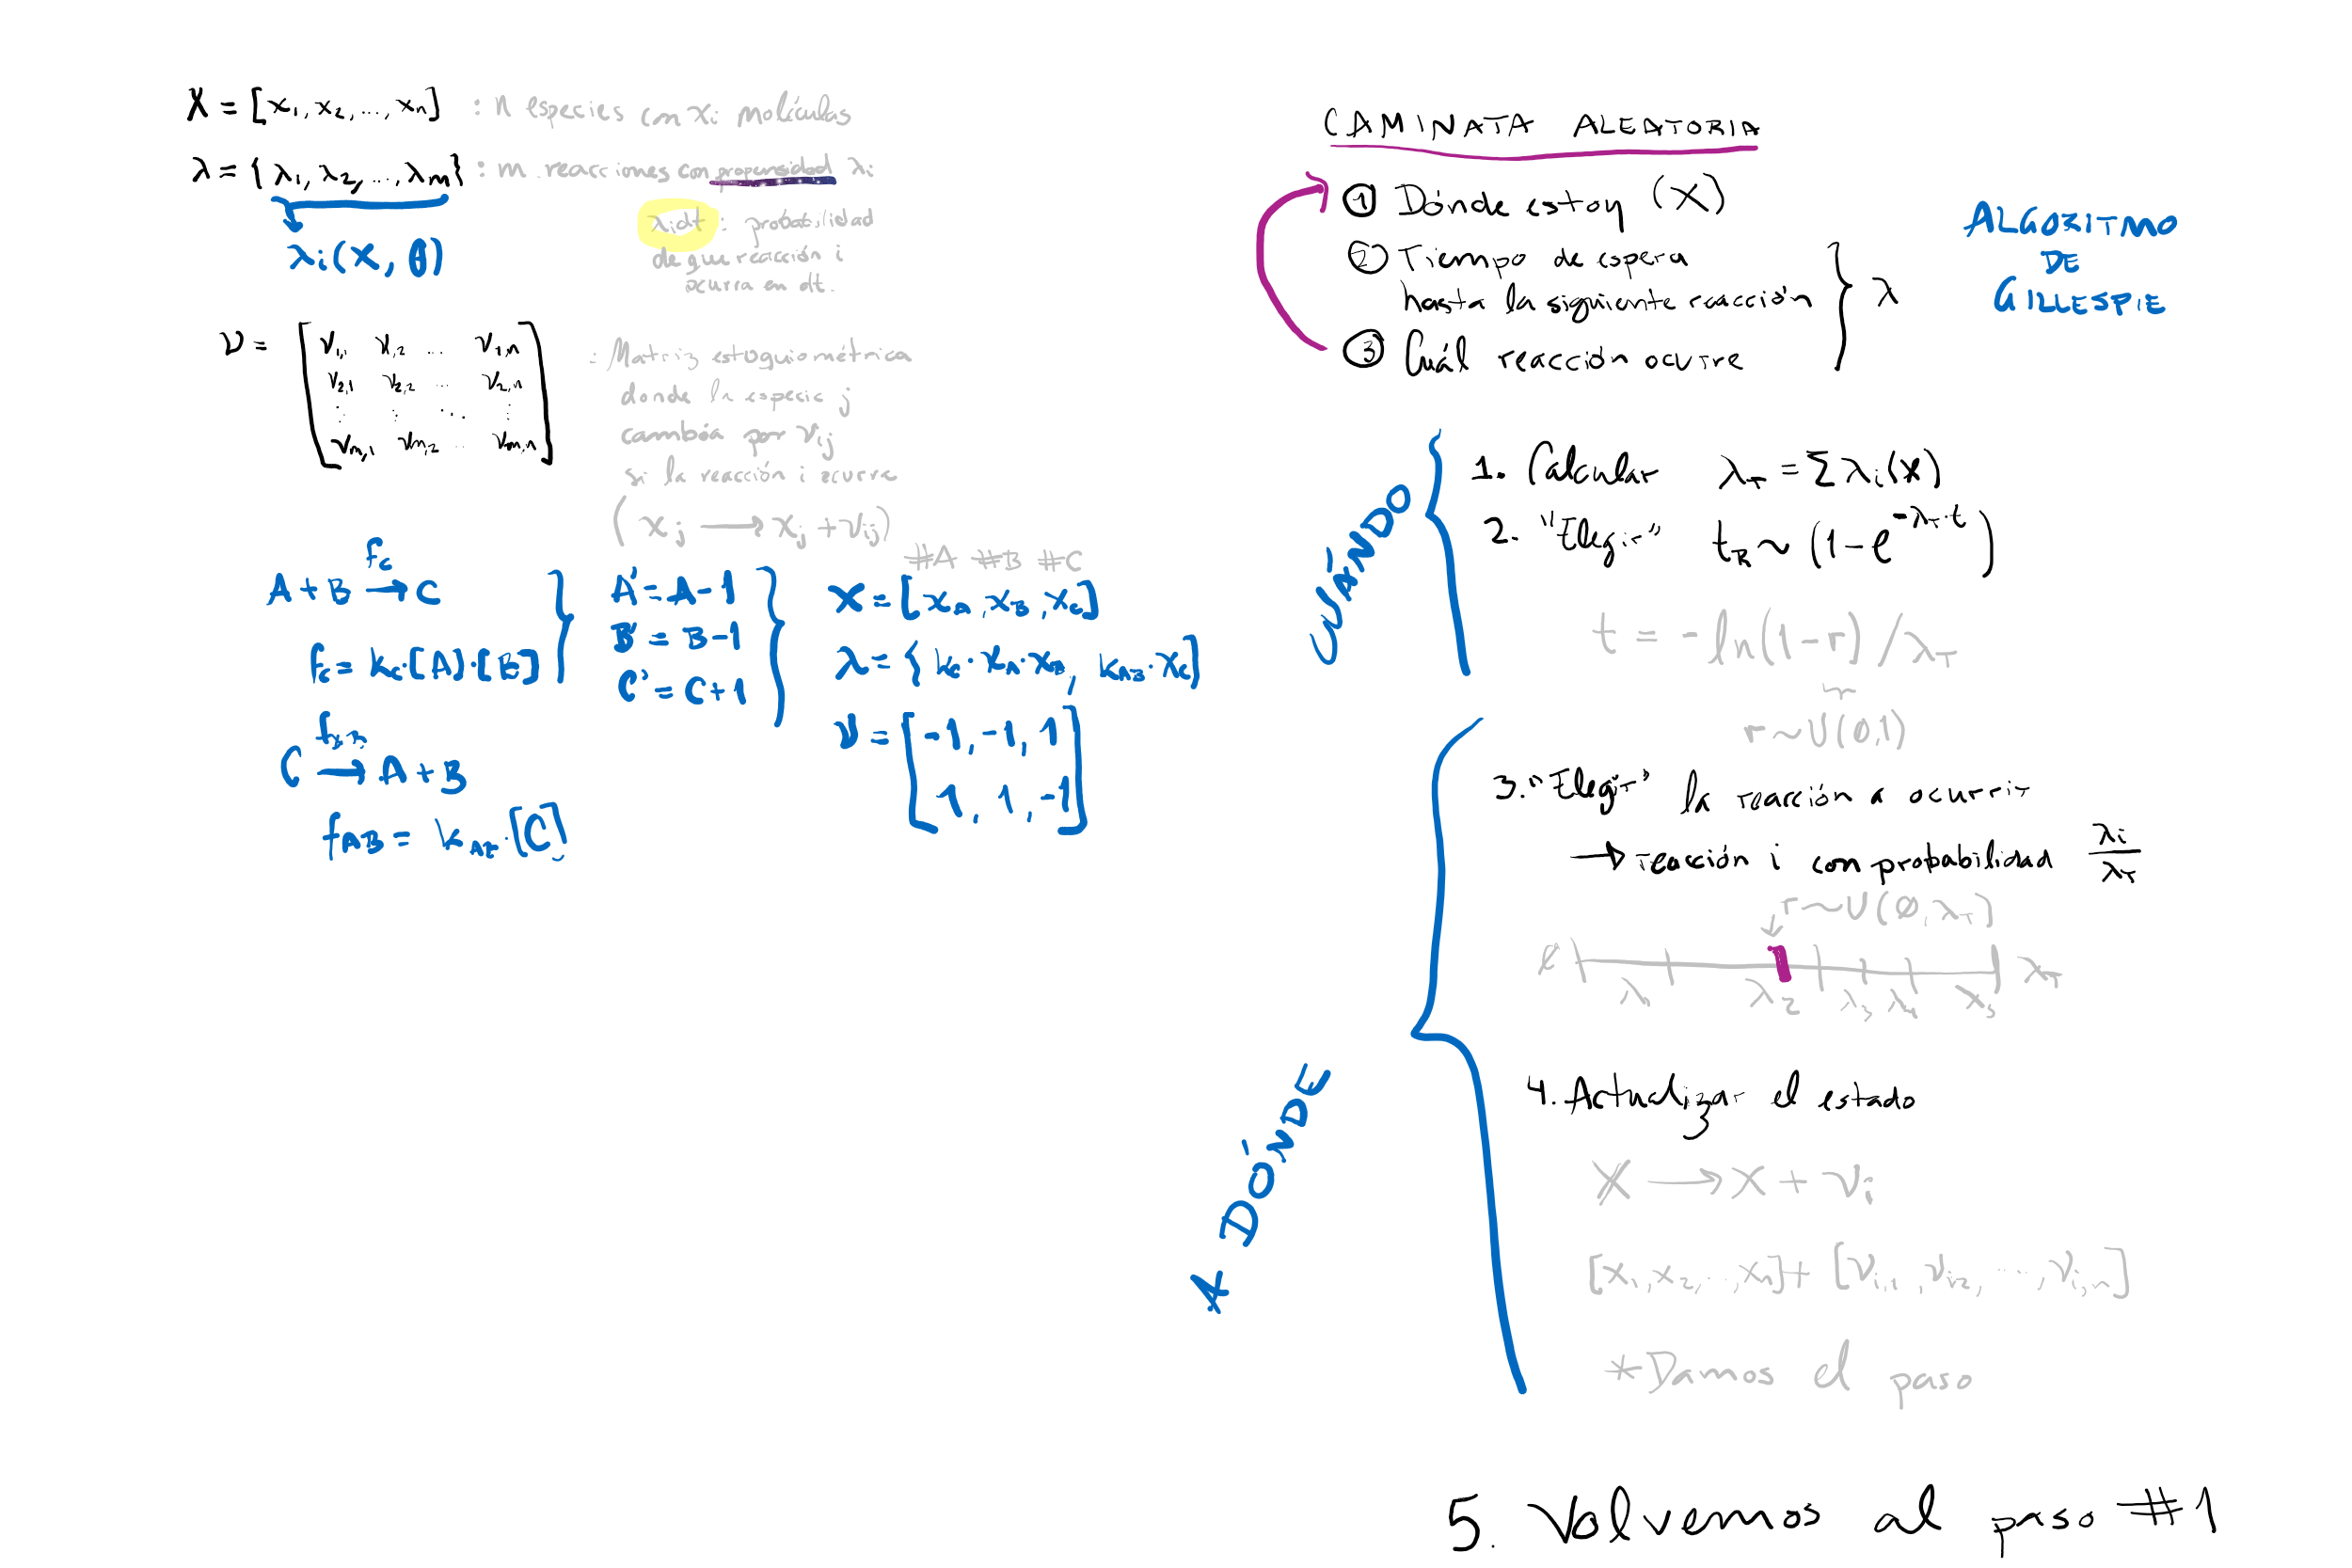 X = [x₁, x₂, ..., xₙ] : n especies con xᵢ moléculas
λ = {λ₁, λ₂, ..., λₘ} : m reacciones con propensidad λᵢ
λᵢ(X, θ)
λᵢdt : probabilidad
de que reacción i
ocurra en dt.
ν = [ν₁,₁ ν₁,₂ ... ν₁,ₙ
ν₂,₁ ν₂,₂ ... ν₂,ₙ
⋮ ⋮ ⋱ ⋮
νₘ,₁ νₘ,₂ ... νₘ,ₙ]
: Matriz estoquiométrica
donde la especie j
cambia por νᵢⱼ
si la reacción i ocurre
(xⱼ → xⱼ + νᵢⱼ)
A + B →(f_C) C
f_C = k_C·[A]·[B]
C →(f_AB) A + B
f_AB = k_AB·[C]
A' = A - 1
B' = B - 1
C' = C + 1
#A #B #C
X = [x_A, x_B, x_C]
λ = {k_C·x_A·x_B, k_AB·x_C}
ν = [-1, -1, 1
1, 1, -1]
CAMINATA ALEATORIA
① Dónde estoy (X)
② Tiempo de espera
hasta la siguiente reacción
③ Cuál reacción ocurre
λ
ALGORITMO
DE
GILLESPIE
CUÁNDO
1. Calcular λ_T = Σ λᵢ(X)
2. "Elegir" t_R ~ (1 - e^(-λ_T·t))
t = - ln(1-r) / λ_T
r ~ U(0,1)
A DÓNDE
3. "Elegir" la reacción a ocurrir
→ reacción i con probabilidad λᵢ/λ_T
r ~ U(0, λ_T)
0 λ₁ λ₂ λ₃ λ₄ λ₅ λ_T
4. Actualizar el estado
X → X + νᵢ
[x₁, x₂, ..., xₙ] + [νᵢ,₁, νᵢ,₂, ..., νᵢ,ₙ]
*Damos el paso
5. Volvemos al paso #1